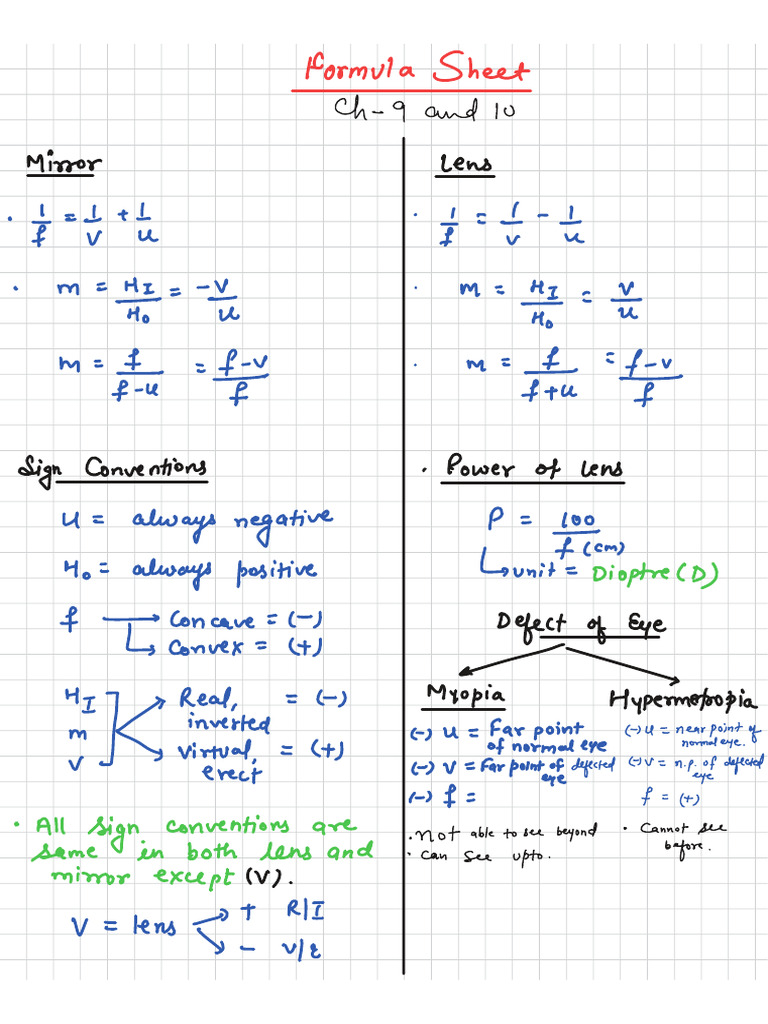 Formula Sheet
Ch-9 and 10
Mirror
• 1/f = 1/v + 1/u
• m = H_I/H_o = -v/u
m = f/f-u = f-v/f
Sign Conventions
u = always negative
H_o = always positive
f → Concave = (-)
→ Convex = (+)
H_I
m
v
Real, inverted = (-)
Virtual, erect = (+)
• All sign conventions are
same in both lens and
mirror except (V).
V = lens
+ R/I
- V/E
Lens
• 1/f = 1/v - 1/u
• m = H_I/H_o = v/u
• m = f/f+u = f-v/f
• Power of lens
P = 100/f (cm)
↳ unit = Dioptre (D)
Defect of Eye
Myopia
(-) u = Far point
of normal eye
(-) v = Far point of defected
eye
(-) f =
• Not able to see beyond
• Can see upto.
Hypermetropia
(-) u = near point of
normal eye.
(-) v = n.p. of defected
eye
f = (+)
• Cannot see
before.